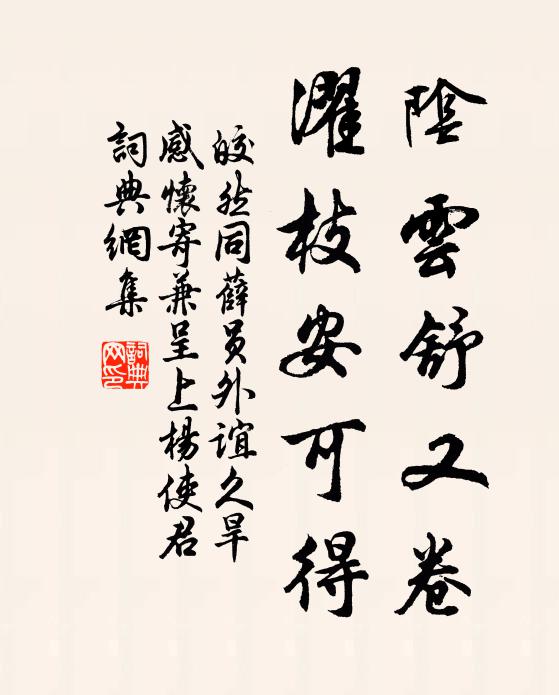 陰雲舒又卷
濯枝安可得
皎然同薛員外誼久旱
感懷寄兼呈上楊使君
詞典網集
詞典网印